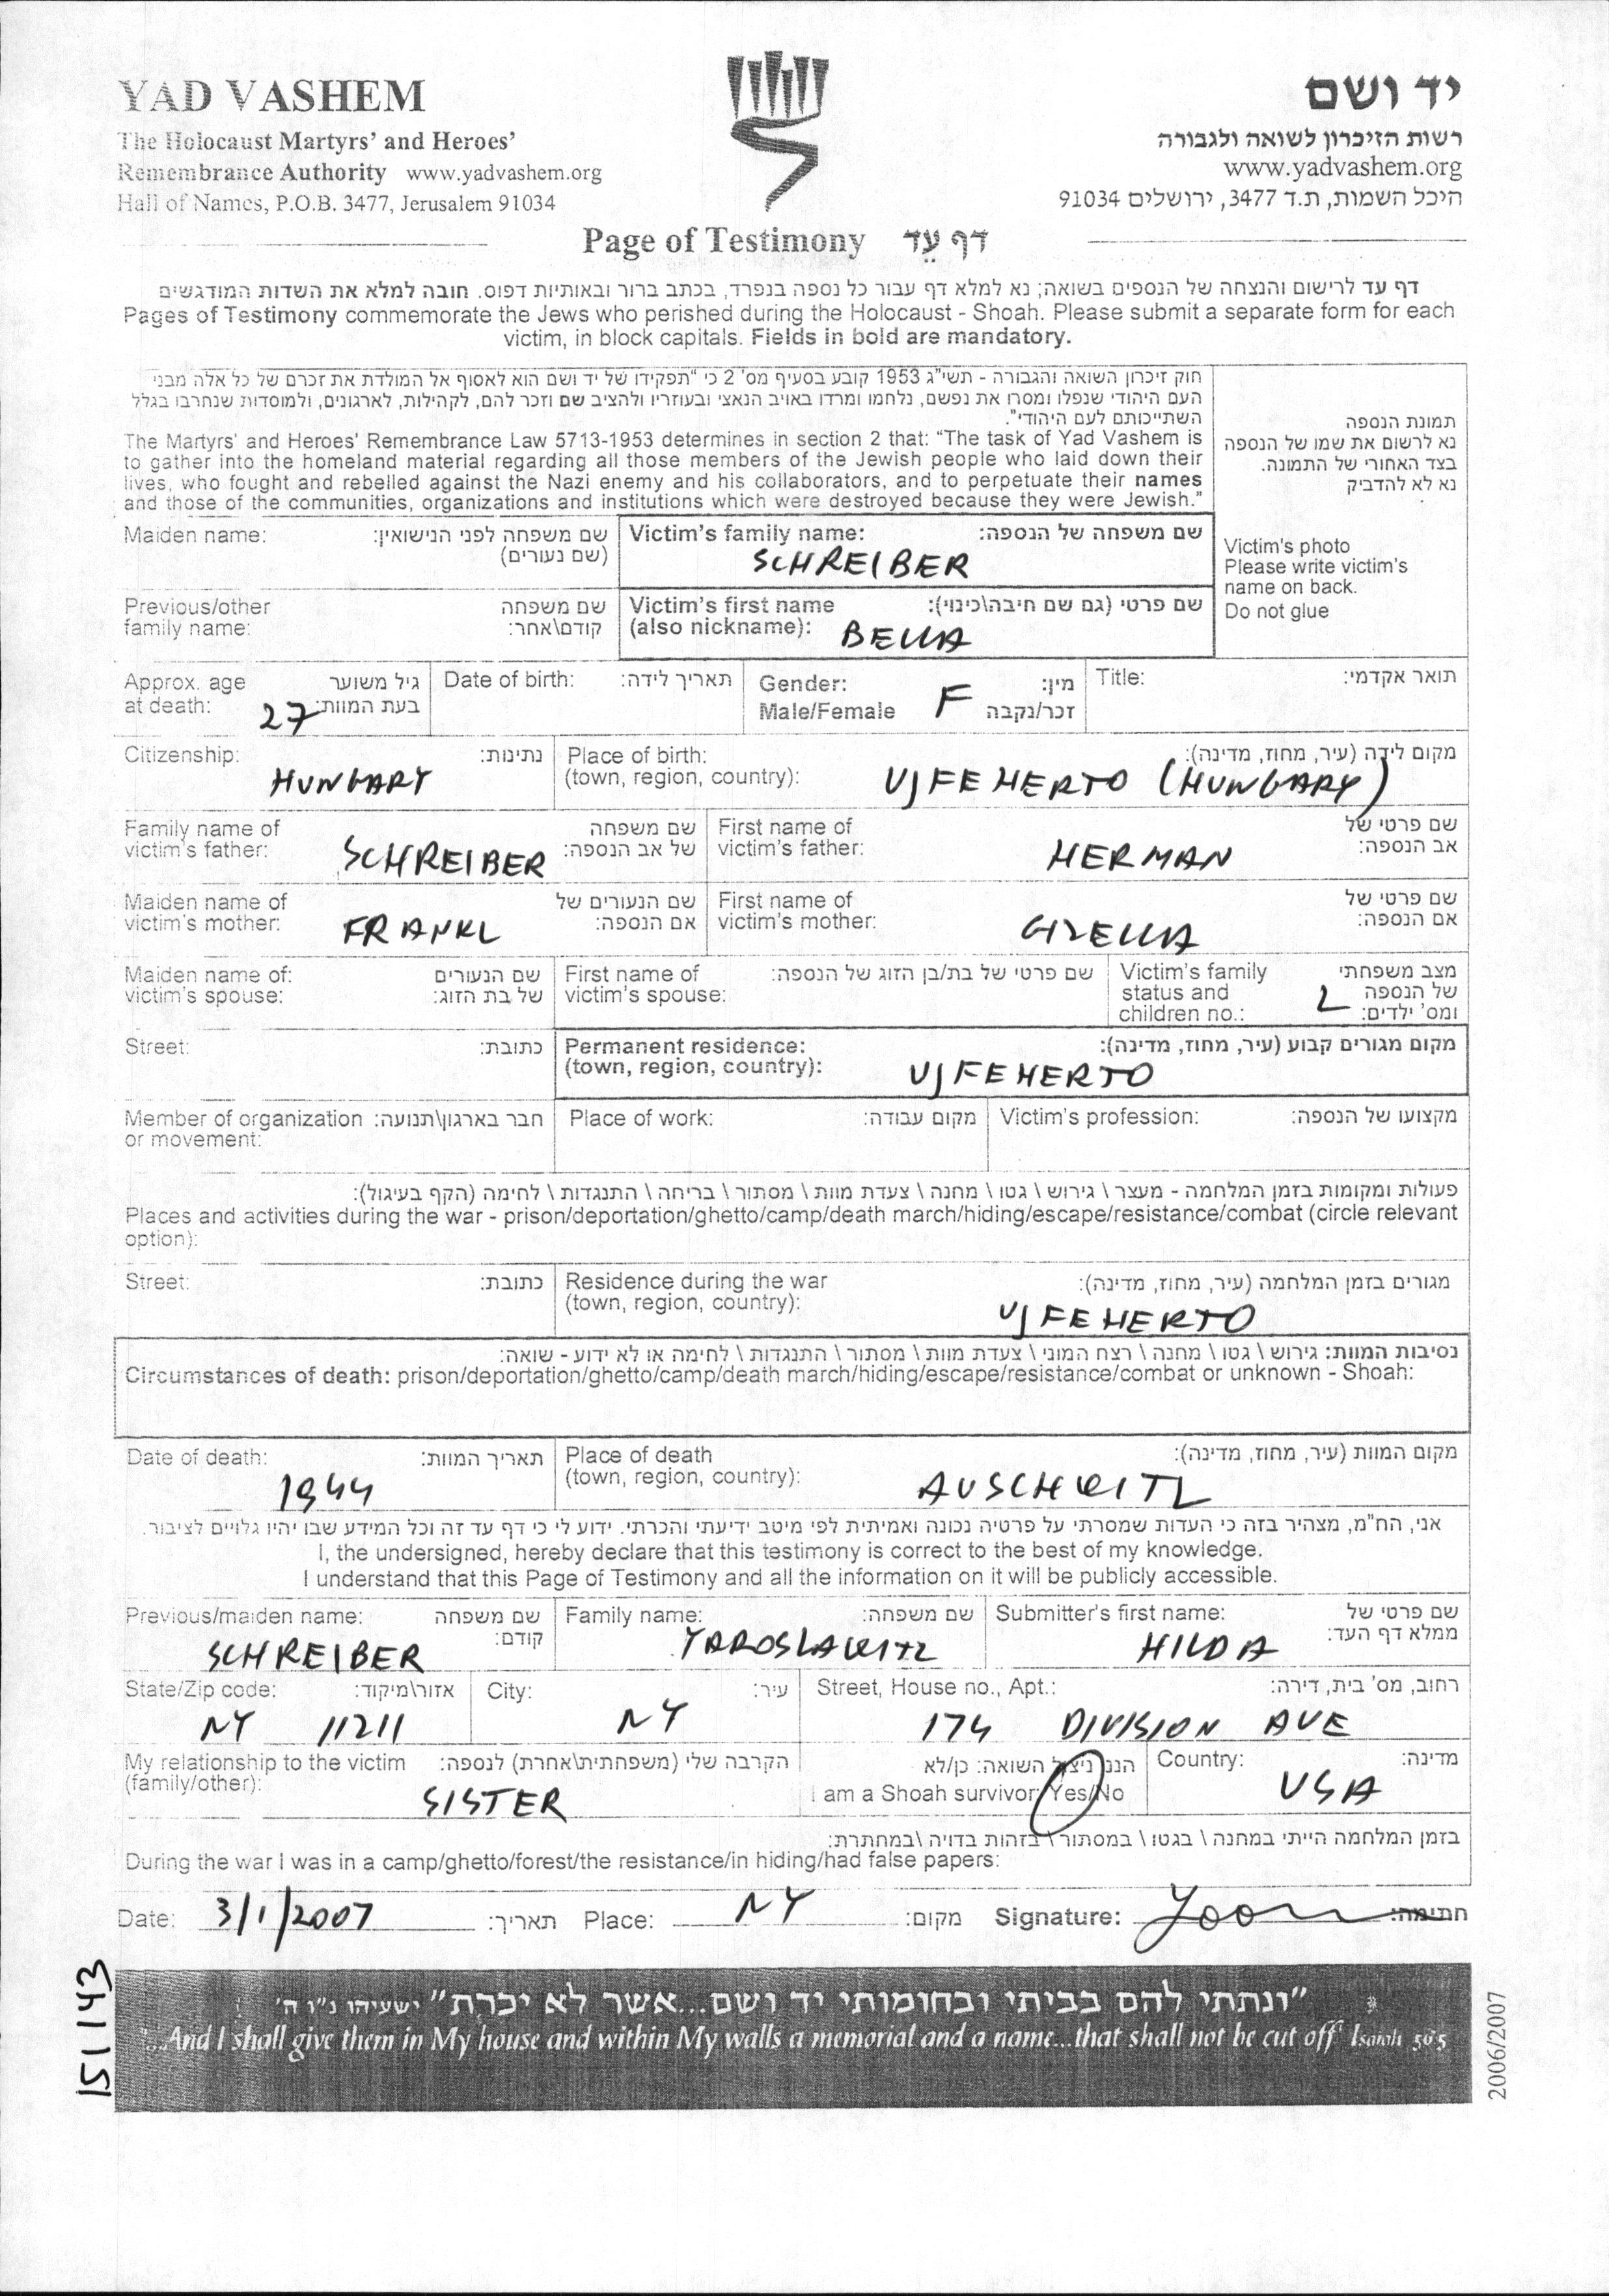 YAD VASHEM
The Holocaust Martyrs' and Heroes'
Remembrance Authority www.yadvashem.org
Hall of Names, P.O.B. 3477, Jerusalem 91034
יד ושם
רשות הזיכרון לשואה ולגבורה
www.yadvashem.org
היכל השמות, ת.ד 3477, ירושלים 91034
Page of Testimony דף עֵד
דף עד לרישום והנצחה של הנספים בשואה; נא למלא דף עבור כל נספה בנפרד, בכתב ברור ובאותיות דפוס. חובה למלא את השדות המודגשים
Pages of Testimony commemorate the Jews who perished during the Holocaust - Shoah. Please submit a separate form for each
victim, in block capitals. Fields in bold are mandatory.
חוק זיכרון השואה והגבורה - תשי"ג 1953 קובע בסעיף מס' 2 כי "תפקידו של יד ושם הוא לאסוף אל המולדת את זכרם של כל אלה מבני
העם היהודי שנפלו ומסרו את נפשם, נלחמו ומרדו באויב הנאצי ובעוזריו ולהציב שם וזכר להם, לקהילות, לארגונים, ולמוסדות שנחרבו בגלל
השתייכותם לעם היהודי".
The Martyrs' and Heroes' Remembrance Law 5713-1953 determines in section 2 that: "The task of Yad Vashem is
to gather into the homeland material regarding all those members of the Jewish people who laid down their
lives, who fought and rebelled against the Nazi enemy and his collaborators, and to perpetuate their names
and those of the communities, organizations and institutions which were destroyed because they were Jewish."
תמונת הנספה
נא לרשום את שמו של הנספה
בצד האחורי של התמונה.
נא לא להדביק
Victim's photo
Please write victim's
name on back.
Do not glue
Maiden name: שם משפחה לפני הנישואין:
(שם נעורים)
Victim's family name: שם משפחה של הנספה:
SCHREIBER
Previous/other שם משפחה
family name: קודם\אחר:
Victim's first name שם פרטי (גם שם חיבה\כינוי):
(also nickname): BELLA
Approx. age גיל משוער
at death: 27 בעת המוות:
Date of birth: תאריך לידה:
Gender: F מין:
Male/Female זכר/נקבה
Title: תואר אקדמי:
Citizenship: נתינות:
HUNGARY
Place of birth: מקום לידה (עיר, מחוז, מדינה):
(town, region, country): UJFEHERTO (HUNGARY)
Family name of שם משפחה
victim's father: SCHREIBER של אב הנספה:
First name of שם פרטי של
victim's father: HERMAN אב הנספה:
Maiden name of שם הנעורים של
victim's mother: FRANKL אם הנספה:
First name of שם פרטי של
victim's mother: GIZELLA אם הנספה:
Maiden name of: שם הנעורים
victim's spouse: של בת הזוג:
First name of שם פרטי של בת/בן הזוג של הנספה:
victim's spouse:
Victim's family מצב משפחתי
status and של הנספה
children no.: ומס' ילדים:
Street: כתובת:
Permanent residence: מקום מגורים קבוע (עיר, מחוז, מדינה):
(town, region, country): UJFEHERTO
Member of organization חבר בארגון\תנועה:
or movement:
Place of work: מקום עבודה:
Victim's profession: מקצועו של הנספה:
פעולות ומקומות בזמן המלחמה - מעצר \ גירוש \ גטו \ מחנה \ צעדת מוות \ מסתור \ בריחה \ התנגדות \ לחימה (הקף בעיגול):
Places and activities during the war - prison/deportation/ghetto/camp/death march/hiding/escape/resistance/combat (circle relevant
option):
Street: כתובת:
Residence during the war מגורים בזמן המלחמה (עיר, מחוז, מדינה):
(town, region, country): UJFEHERTO
נסיבות המוות: גירוש \ גטו \ מחנה \ רצח המוני \ צעדת מוות \ מסתור \ התנגדות \ לחימה או לא ידוע - שואה:
Circumstances of death: prison/deportation/ghetto/camp/death march/hiding/escape/resistance/combat or unknown - Shoah:
Date of death: תאריך המוות:
1944
Place of death מקום המוות (עיר, מחוז, מדינה):
(town, region, country): AUSCHWITZ
אני, הח"מ, מצהיר בזה כי העדות שמסרתי על פרטיה נכונה ואמיתית לפי מיטב ידיעתי והכרתי. ידוע לי כי דף עד זה וכל המידע שבו יהיו גלויים לציבור.
I, the undersigned, hereby declare that this testimony is correct to the best of my knowledge.
I understand that this Page of Testimony and all the information on it will be publicly accessible.
Previous/maiden name: שם משפחה
קודם:
SCHREIBER
Family name: שם משפחה:
YAROSLAWITZ
Submitter's first name: שם פרטי של
ממלא דף העד:
HILDA
State/Zip code: אזור\מיקוד:
NY 11211
City: עיר:
NY
Street, House no., Apt.: רחוב, מס' בית, דירה:
174 DIVISION AVE
My relationship to the victim הקרבה שלי (משפחתית\אחרת) לנספה:
(family/other): SISTER
הנני ניצול השואה: כן/לא
I am a Shoah survivor: Yes/No
Country: מדינה:
USA
בזמן המלחמה הייתי במחנה \ בגטו \ במסתור \ בזהות בדויה \במחתרת:
During the war I was in a camp/ghetto/forest/the resistance/in hiding/had false papers:
Date: 3/1/2007 תאריך: Place: NY מקום: Signature: חתימה:
"ונתתי להם בביתי ובחומותי יד ושם...אשר לא יכרת" ישעיהו נ"ו ה'
"..And I shall give them in My house and within My walls a memorial and a name...that shall not be cut off" Isaiah 56:5
151143
2006/2007